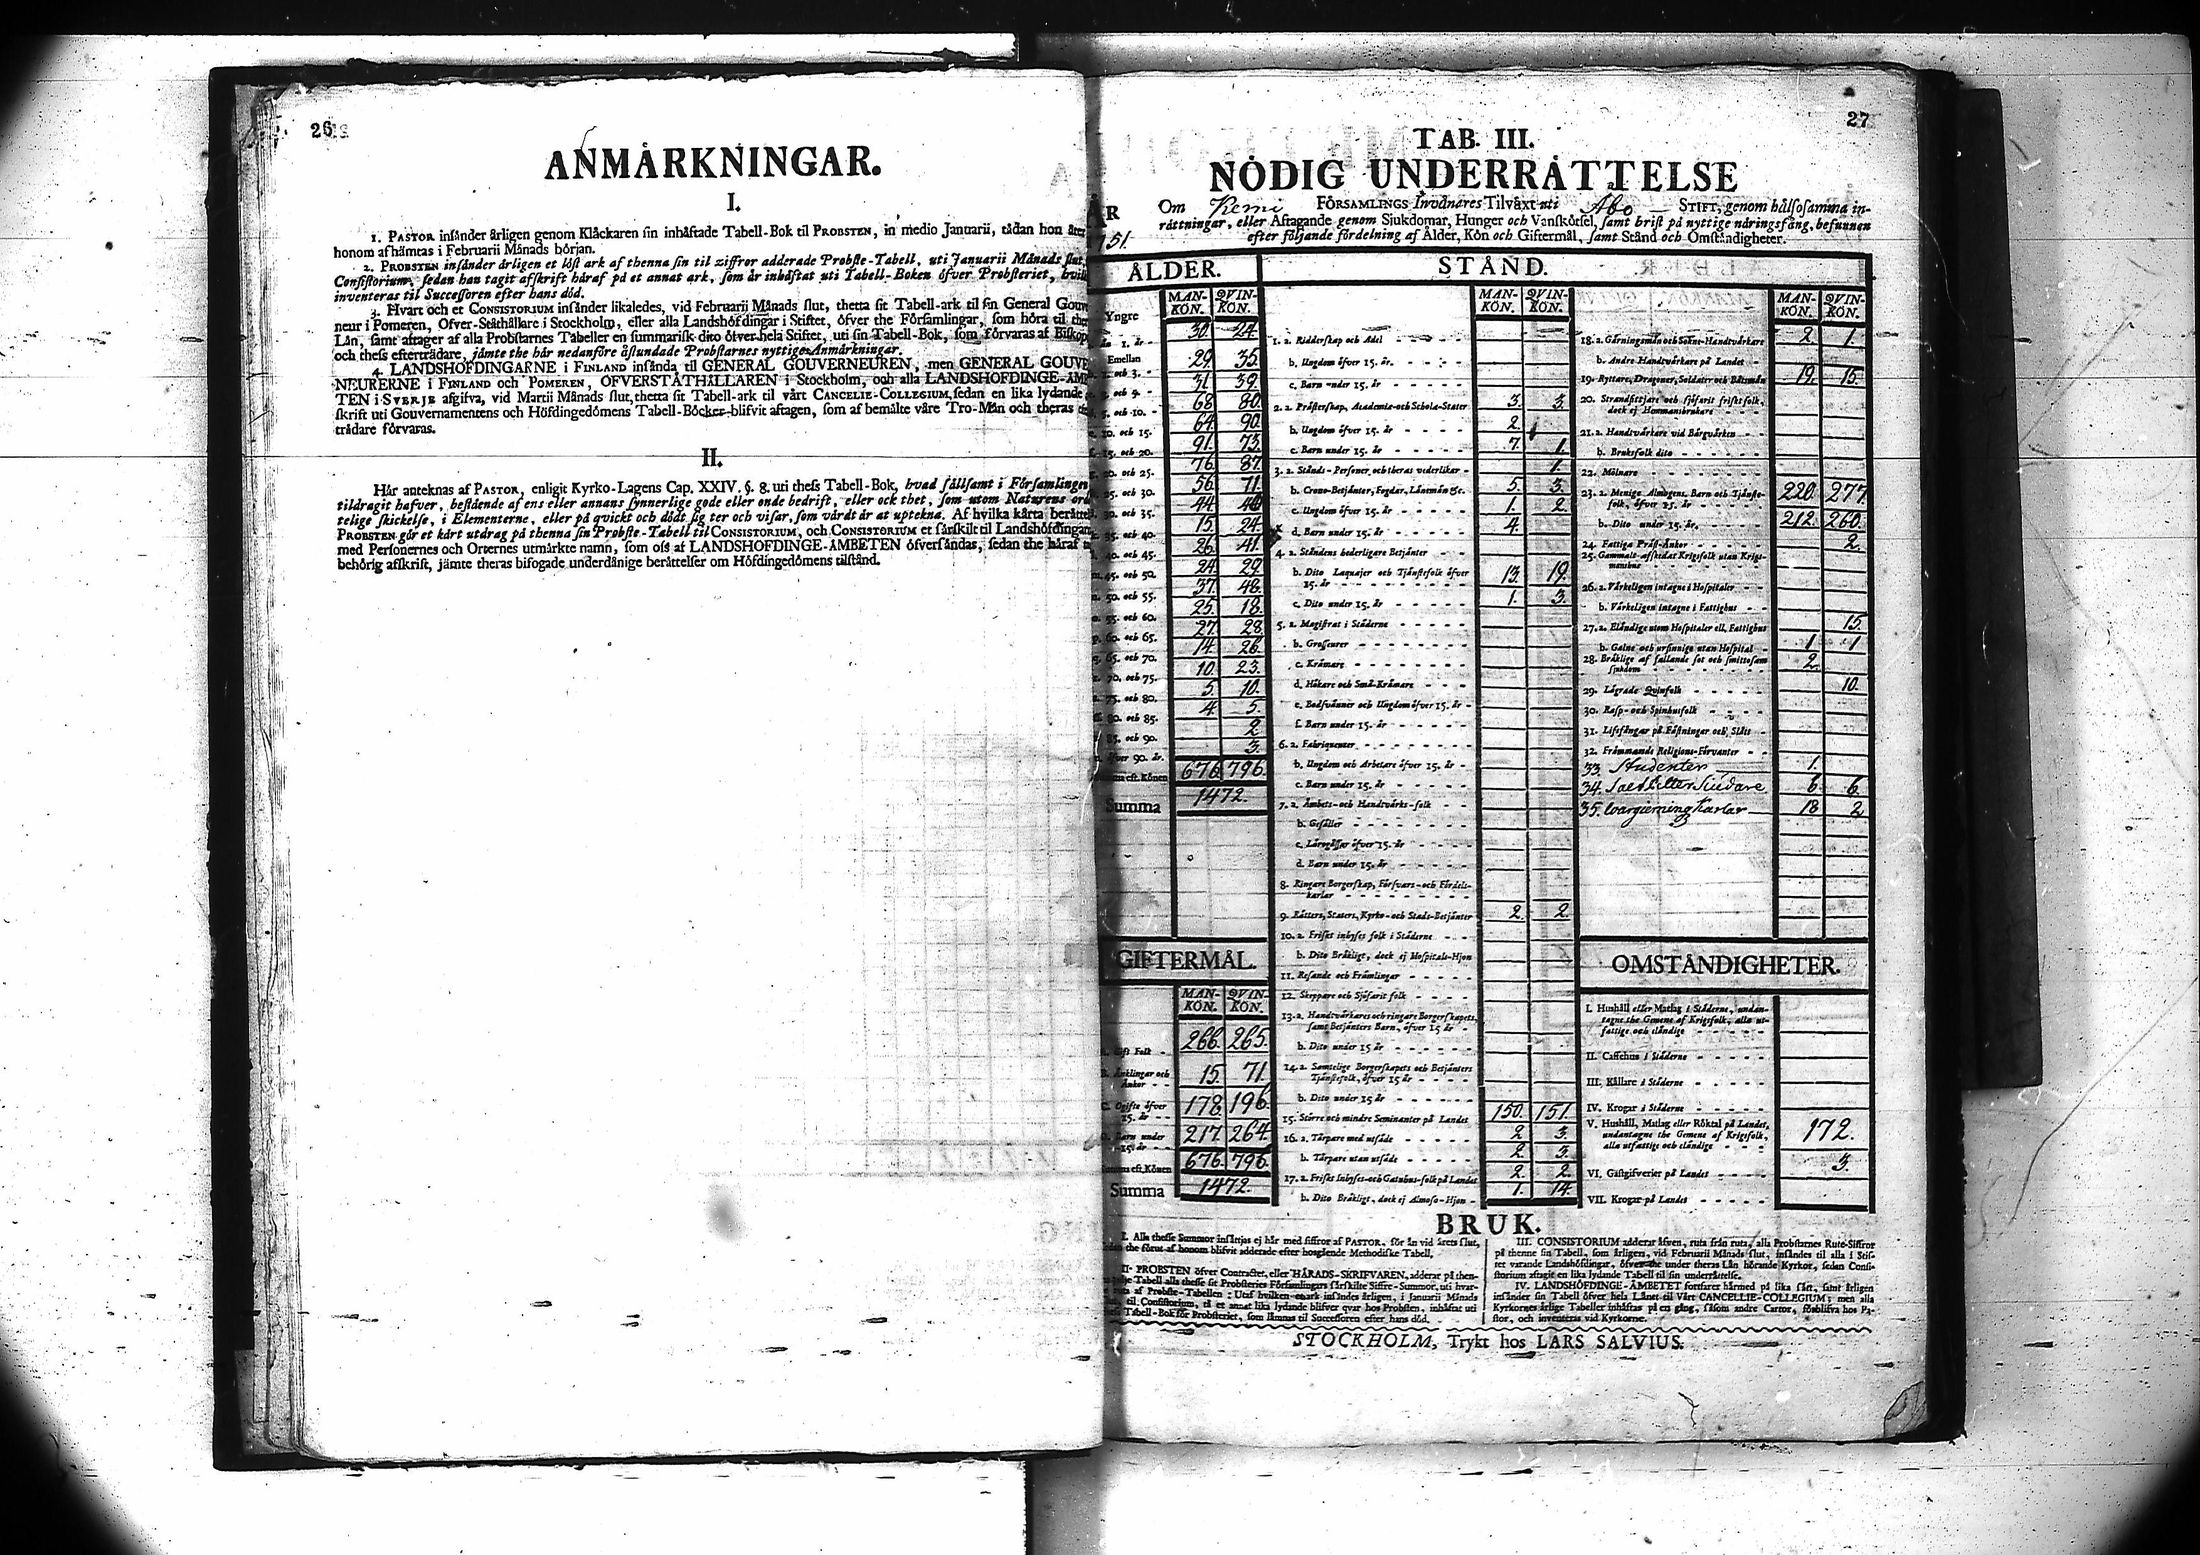 26
ANMÅRKNINGAR.
I.
1. PASTOR insånder årligen genom Klåckaren sin inhåftade Tabell-Bok til PROBSTEN, in medio Januarii, tådan hon åter
honom afhåmtas i Februarii Månads början.
2. PROBSTEN insånder årligen et löst ark af thenna sin til ziffror adderade Probste-Tabell, uti Januarii Månads slut,
Consistorium, sedan han tagit afskrift håraf på et annat ark, som år inhåftat uti Tabell-Boken öfver Probsteriet, hvilk
inventeras til Successoren efter hans död.
3. Hvart och et CONSISTORIUM insånder likaledes, vid Februarii Månads slut, thetta sit Tabell-ark til sin General Gouv
neur i Pomeren, Ofver-Ståthållare i Stockholm, eller alla Landshöfdingar i Stiftet, öfver the Församlingar, som höra til ther
Lån, samt aftager af alla Probstarnes Tabeller en summarisk dito öfver hela Stiftet, uti sin Tabell-Bok, som förvaras af Biskop
och thess eftertrådare, jåmte the hår nedanföre åstundade Probstarnes nyttige Anmårkningar.
4. LANDSHÖFDINGARNE i FINLAND insånda til GENERAL GOUVERNEUREN, men GENERAL GOUVE
NEURERNE i FINLAND och POMEREN, OFVERSTÅTHÅLLAREN i Stockholm, och alla LANDSHÖFDINGE-ÅMB
TEN i SVERJE afgifva, vid Martii Månads slut, thetta sit Tabell-ark til vårt CANCELIE-COLLEGIUM, sedan en lika lydande
skrift uti Gouvernamentens och Höfdingedömens Tabell-Böcker blifvit aftagen, som af bemålte våre Tro-Mån och theras
trådare förvaras.
II.
Hår anteknas af PASTOR, enligit Kyrko-Lagens Cap. XXIV. §. 8. uti thess Tabell-Bok, hvad sållsamt i Församlingen
tildragit hafver, bestående af ens eller annans synnerlige gode eller onde bedrift, eller ock thet, som utom Naturens ord
telige skickelse, i Elementerne, eller på qvickt och dödt sig ter och visar, som vårdt år at uptekna. Af hvilka kårta beråttel
PROBSTEN gör et kårt utdrag på thenna sin Probste-Tabell til CONSISTORIUM, och CONSISTORIUM et sårskilt til Landshöfdingar
med Personernes och Orternes utmårkte namn, som oss af LANDSHÖFDINGE-ÅMBETEN öfversåndas, sedan the håraf
behörig afskrift, jåmte theras bifogade underdånige beråttelser om Höfdingedömens tilstånd.
27
TAB. III.
NÖDIG UNDERRÅTTELSE
ÅR
751.
Om Kemi FÖRSAMLINGS Invånares Tilvåxt uti Åbo STIFT, genom hålsosamma in-
råttningar, eller Aftagande genom Sjukdomar, Hunger och Vanskötsel, samt brist på nyttige nåringsfång, befunnen
efter följande fördelning af Ålder, Kön och Giftermål, samt Stånd och Omståndigheter.
ÅLDER.
MAN-KÖN. QVIN-KÖN.
Yngre
1. år 30. 24.
Emellan
och 3. 29. 35.
och 5. 31. 39.
5. och 10. 68. 80.
10. och 15. 64. 90.
15. och 20. 91. 73.
20. och 25. 76. 87.
25. och 30. 56. 71.
30. och 35. 44. 40
35. och 40. 15. 24.
40. och 45. 26. 41.
45. och 50. 24. 29.
50. och 55. 37. 48.
55. och 60. 25. 18.
60. och 65. 27. 28.
65. och 70. 14. 26.
70. och 75. 10. 23.
75. och 80. 5. 10.
80. och 85. 4. 5.
85. och 90. 2.
öfver 90. år. 3.
eft. Könen 676. 796.
Summa 1472.
GIFTERMÅL.
MAN-KÖN. QVIN-KÖN.
Gift Folk 266. 265.
Ånklingar och Ånkor 15. 71.
Ogifte öfver 15. år 178. 196.
Barn under 15. år 217. 264.
eft. Könen 676. 796.
Summa 1472.
STÅND.
MAN-KÖN. QVIN-KÖN.
1. a. Ridderskap och Adel
b. Ungdom öfver 15. år.
c. Barn under 15. år
2. a. Pråsterskap, Academie-och Schola-Stater 3. 3.
b. Ungdom öfver 15. år 2.
c. Barn under 15. år 7. 1.
3. a. Stånds-Personer, och theras vederlikar 1.
b. Crono-Betjånter, Fogdar, Lånsmån &c. 5. 3.
c. Ungdom öfver 15. år 1. 2.
d. Barn under 15. år 4.
4. a. Ståndens hederligare Betjånter
b. Dito Laquajer och Tjånstefolk öfver 15. år 13. 19.
c. Dito under 15. år 1. 3.
5. a. Magistrat i Ståderne
b. Grosseurer
c. Kråmare
d. Håkare och Små-Kråmare
e. Bodsvånner och Ungdom öfver 15. år
f. Barn under 15. år
6. a. Fabriqueurer
b. Ungdom och Arbetare öfver 15. år
c. Barn under 15. år
7. a. Åmbets-och Handtvårks-folk
b. Gesåller
c. Lårogåssar öfver 15. år
d. Barn under 15. år
8. Ringare Borgerskap, Försvars-och Fördels-karlar
9. Råtters, Staters, Kyrko-och Stads-Betjånter 2. 2.
10. a. Friskt inhyses folk i Ståderne
b. Dito Bråkligt, dock ej Hospitals-Hjon
11. Resande och Fråmlingar
12. Skeppare och Sjöfarit folk
13. a. Handtvårkares och ringare Borgerskapets, samt Betjånters Barn, öfver 15 år
b. Dito under 15 år
14. a. Samtelige Borgerskapets och Betjånters Tjånstefolk, öfver 15 år
b. Dito under 15 år
15. Större och mindre Seminanter på Landet 150. 151.
16. a. Tårpare med utsåde 2 3.
b. Tårpare utan utsåde 2. 3.
17. a. Friskt Inhyses-och Gatuhus-folk på Landet 2. 2.
b. Dito Bråkligt, dock ej Almoso-Hjon 1. 14.
MAN-KÖN. QVIN-KÖN.
18. a. Gårningsmån och Sokne-Handtvårkare 2 1.
b. Andre Handtvårkare på Landet
19. Ryttare, Dragoner, Soldater och Båtsmån 19. 15.
20. Strandsittjare och sjöfarit friskt folk, dock ej Hemmansbrukare
21. a. Handtvårkare vid Bårgvårken
b. Bruksfolk dito
22. Mölnare
23. a. Menige Almogens, Barn och Tjånste-folk, öfver 15. år 220. 277.
b. Dito under 15. år. 212. 260.
24. Fattiga Pråst-Ånkor 2.
25. Gammalt afskedat Krigsfolk utan Krigsmanshus
26. a. Vårkeligen intagne i Hospitaler
b. Vårkeligen intagne i Fattighus
27. a. Elåndige utom Hospitaler ell. Fattighus 15.
b. Galne och ursinnige utan Hospital 1 1
28. Bråklige af fallande sot och smittosam sjukdom 2.
29. Lågrade Qvinfolk 10.
30. Rasp-och Spinhusfolk
31. Lifsfångar på Fåstningar och Slått
32. Fråmmande Religions-Förvanter
33. Studenter 1.
34. Saltpetter Siudare 6. 6.
35. wargierning karlar 18 2
OMSTÅNDIGHETER.
I. Hushåll eller Matlag i Ståderne, undantagne the Gemene af Krigsfolk, alla utfattige och elåndige
II. Caffehus i Ståderne
III. Kållare i Ståderne
IV. Krogar i Ståderne
V. Hushåll, Matlag eller Röktal på Landet, undantagne the Gemene af Krigsfolk, alla utfattige och elåndige 172.
VI. Gåstgifverier på Landet 3.
VII. Krogar på Landet
BRUK.
I. Alla thesse Summor insåttjas ej hår med siffror af PASTOR, för ån vid årets slut,
the förut af honom blifvit adderade efter hosgående Methodiske Tabell.
II. PROBSTEN öfver Contractet, eller HÅRADS-SKRIFVAREN, adderar på then-
Tabell alla thesse sit Probsteries Församlingars sårskilte Siffre-Summor, uti hvar-
af Probste-Tabellen: Utaf hvilken et ark insåndes årligen, i Januarii Månads
til Consistorium, tå et annat lika lydande blifver qvar hos Probsten, inhåftat uti
Tabell-Bok för Probsteriet, som låmnas til Successoren efter hans död.
III. CONSISTORIUM adderar åfven, ruta från ruta, alla Probstarnes Rute-Siffror
på thenne sin Tabell, som årligen, vid Februarii Månads slut, insåndes til alla i Stif-
tet varande Landshöfdingar, öfver the under theras Lån hörande Kyrkor, sedan Consi-
storium aftagit en lika lydande Tabell til sin underråttelse.
IV. LANDSHÖFDINGE-ÅMBETET fortfarer hårmed på lika sått, samt årligen
insånder sin Tabell öfver hela Lånet til Vårt CANCELLIE-COLLEGIUM; men alla
Kyrkornes årlige Tabeller inhåftas på en gång, såsom andre Cartor, förblifva hos Pa-
stor, och inventeras vid Kyrkorne.
STOCKHOLM, Trykt hos LARS SALVIUS.